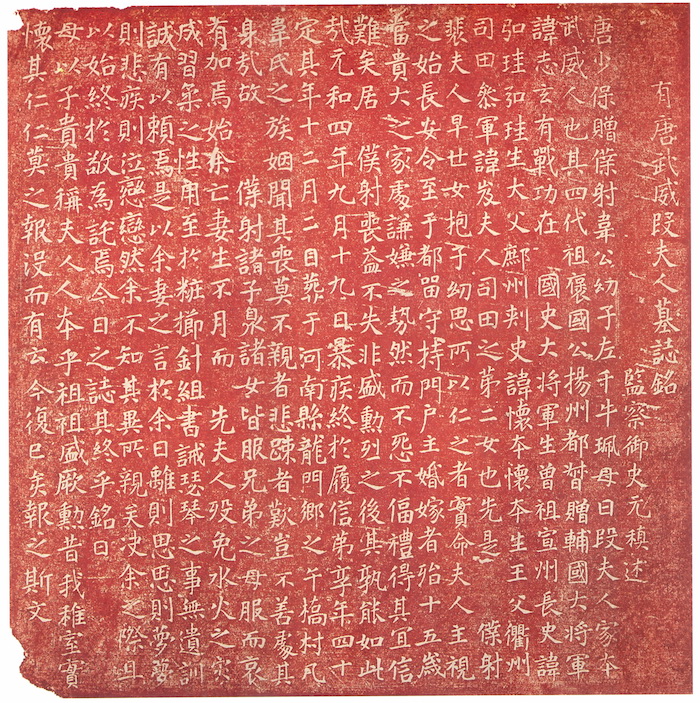 有唐武威段夫人墓誌銘
監察御史元稹述
唐少保贈僕射韋公幼子左千牛珮母曰段夫人家本
武威人也其四代祖褒國公揚州都督贈輔國大將軍
諱志玄有戰功在 國史大將軍生曾祖宣州長史諱
弘珪弘珪生大父鄜州刾史諱懷本懷本生王父衢州
司田叅軍諱岌夫人司田之第二女也先是 僕射
裴夫人早世女抱子幼思所以仁之者實命夫人主視
之始長安令至于都留守持門户主婚嫁者殆十五歲
當貴大之家處謙嫌之勢然而不怨不偪禮得其宜信
難矣居 僕射喪益不失非盛勳烈之後其孰能如此
㢤元和四年九月十九日暴疾終於履信第享年四十
定其年十二月二日葬于河南縣龍門鄉之午橋村凡
韋氏之族姻聞其喪莫不親者悲踈者歎豈不善處其
身㢤故 僕射諸子泉諸女皆服兄弟之母服而哀
有加焉始余亡妻生不月而 先夫人歿免水火之灾
成習柔之性用至於粧櫛針組書誡琴瑟之事無遺訓
誠有以賴焉是以余妻之言於余曰離則思思則夢夢
則悲疾則泣戀戀然余不知其異所親矣没余之際且
以始終於敬爲託焉今日之誌其終乎銘曰
母以子貴貴稱夫人人本乎祖祖盛厥勳昔我稚室實
懷其仁仁莫之報没而有云今復已矣報之斯文